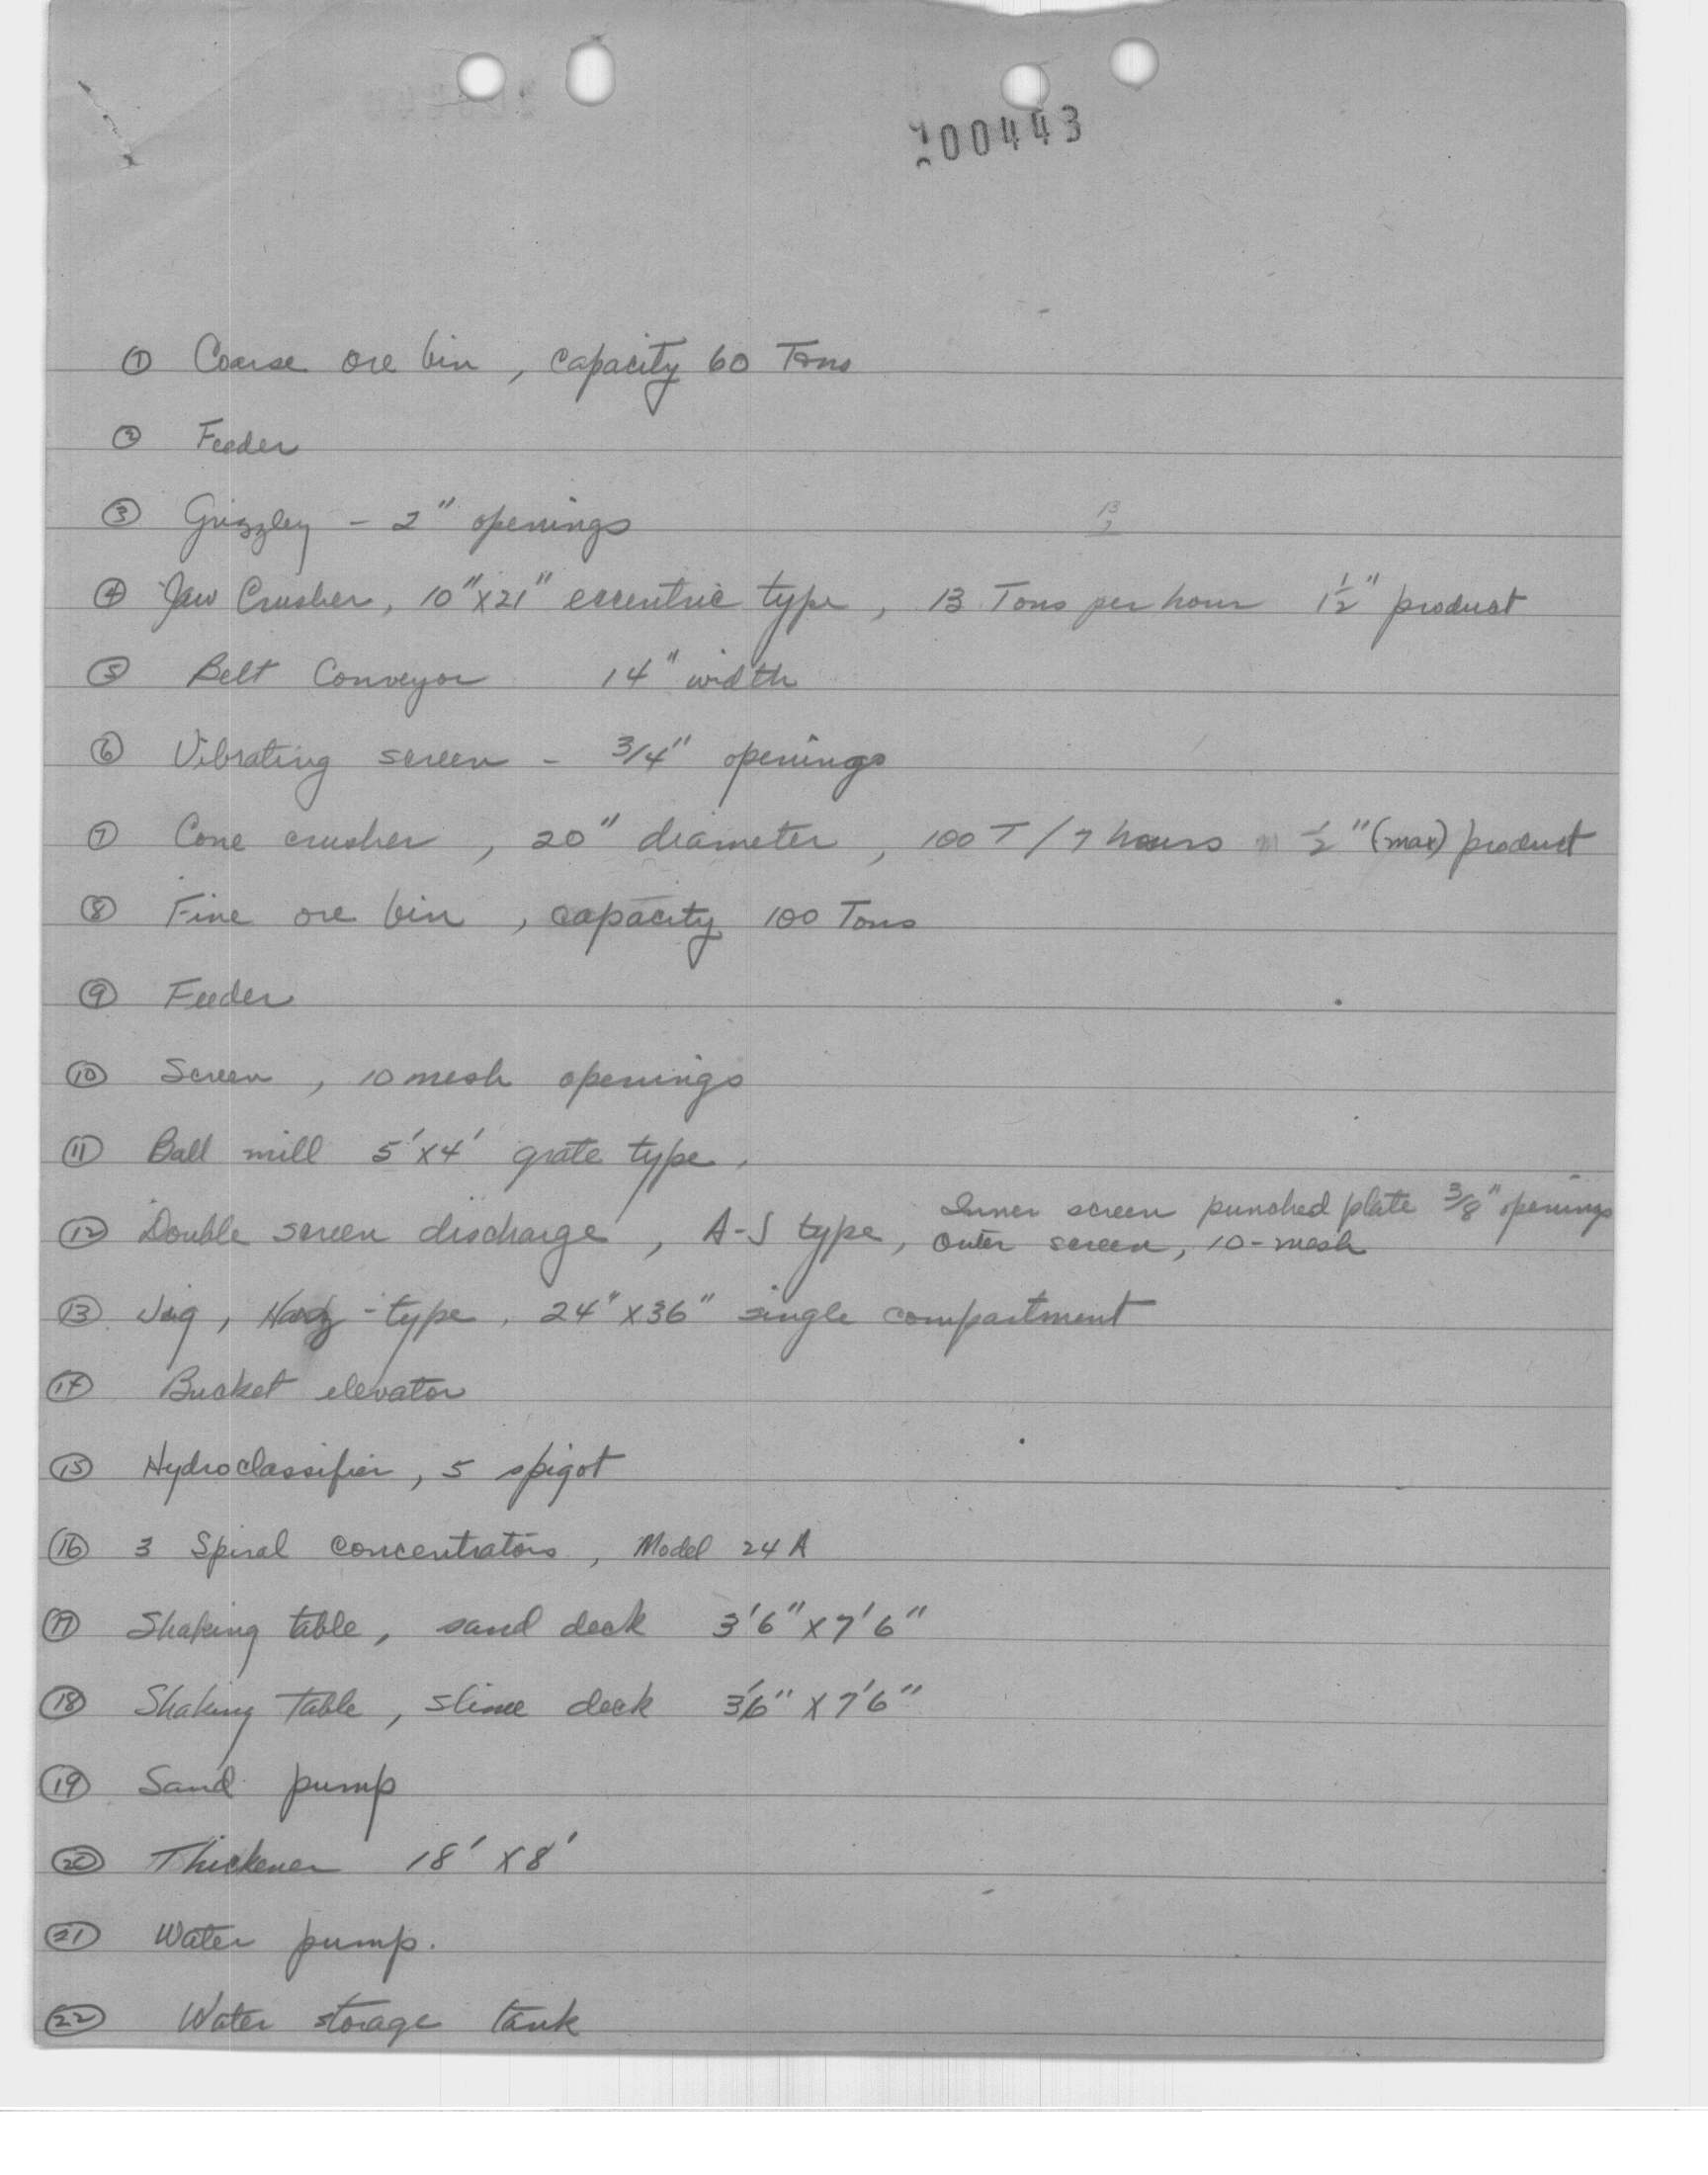 200443
① Coarse ore bin, capacity 60 Tons
② Feeder
③ Grizzley - 2" openings
13
④ Jaw Crusher, 10"x21" eccentric type, 13 Tons per hour 1½" product
⑤ Belt Conveyor 14" width
⑥ Vibrating screen - 3/4" openings
⑦ Cone crusher, 20" diameter, 100 T/7 hours ½" (max) product
⑧ Fine ore bin, capacity 100 Tons
⑨ Feeder
⑩ Screen, 10 mesh openings
⑪ Ball mill 5'x4' grate type.
⑫ Double screen discharge, A-S type, Inner screen punched plate 3/8" openings
Outer screen, 10-mesh
⑬ Jig, Harz-type, 24"x36" single compartment
⑭ Bucket elevator
⑮ Hydroclassifier, 5 spigot
⑯ 3 Spiral concentrators, Model 24A
⑰ Shaking table, sand deck 3'6"x7'6"
⑱ Shaking table, slime deck 3'6"x7'6"
⑲ Sand pump
⑳ Thickener 18'x8'
㉑ Water pump.
㉒ Water storage tank